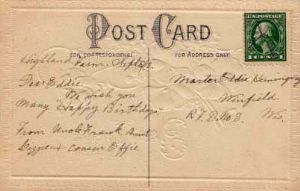 POST CARD
FOR CORRESPONDENCE
FOR ADDRESS ONLY
Highland Farm, Sept
Dear Eddie
We wish you
Many Happy Birthdays
From Uncle Frank Aunt
and Cousin Effie
Master Eddie
Winfield
R.F.D. No 3
Wis.